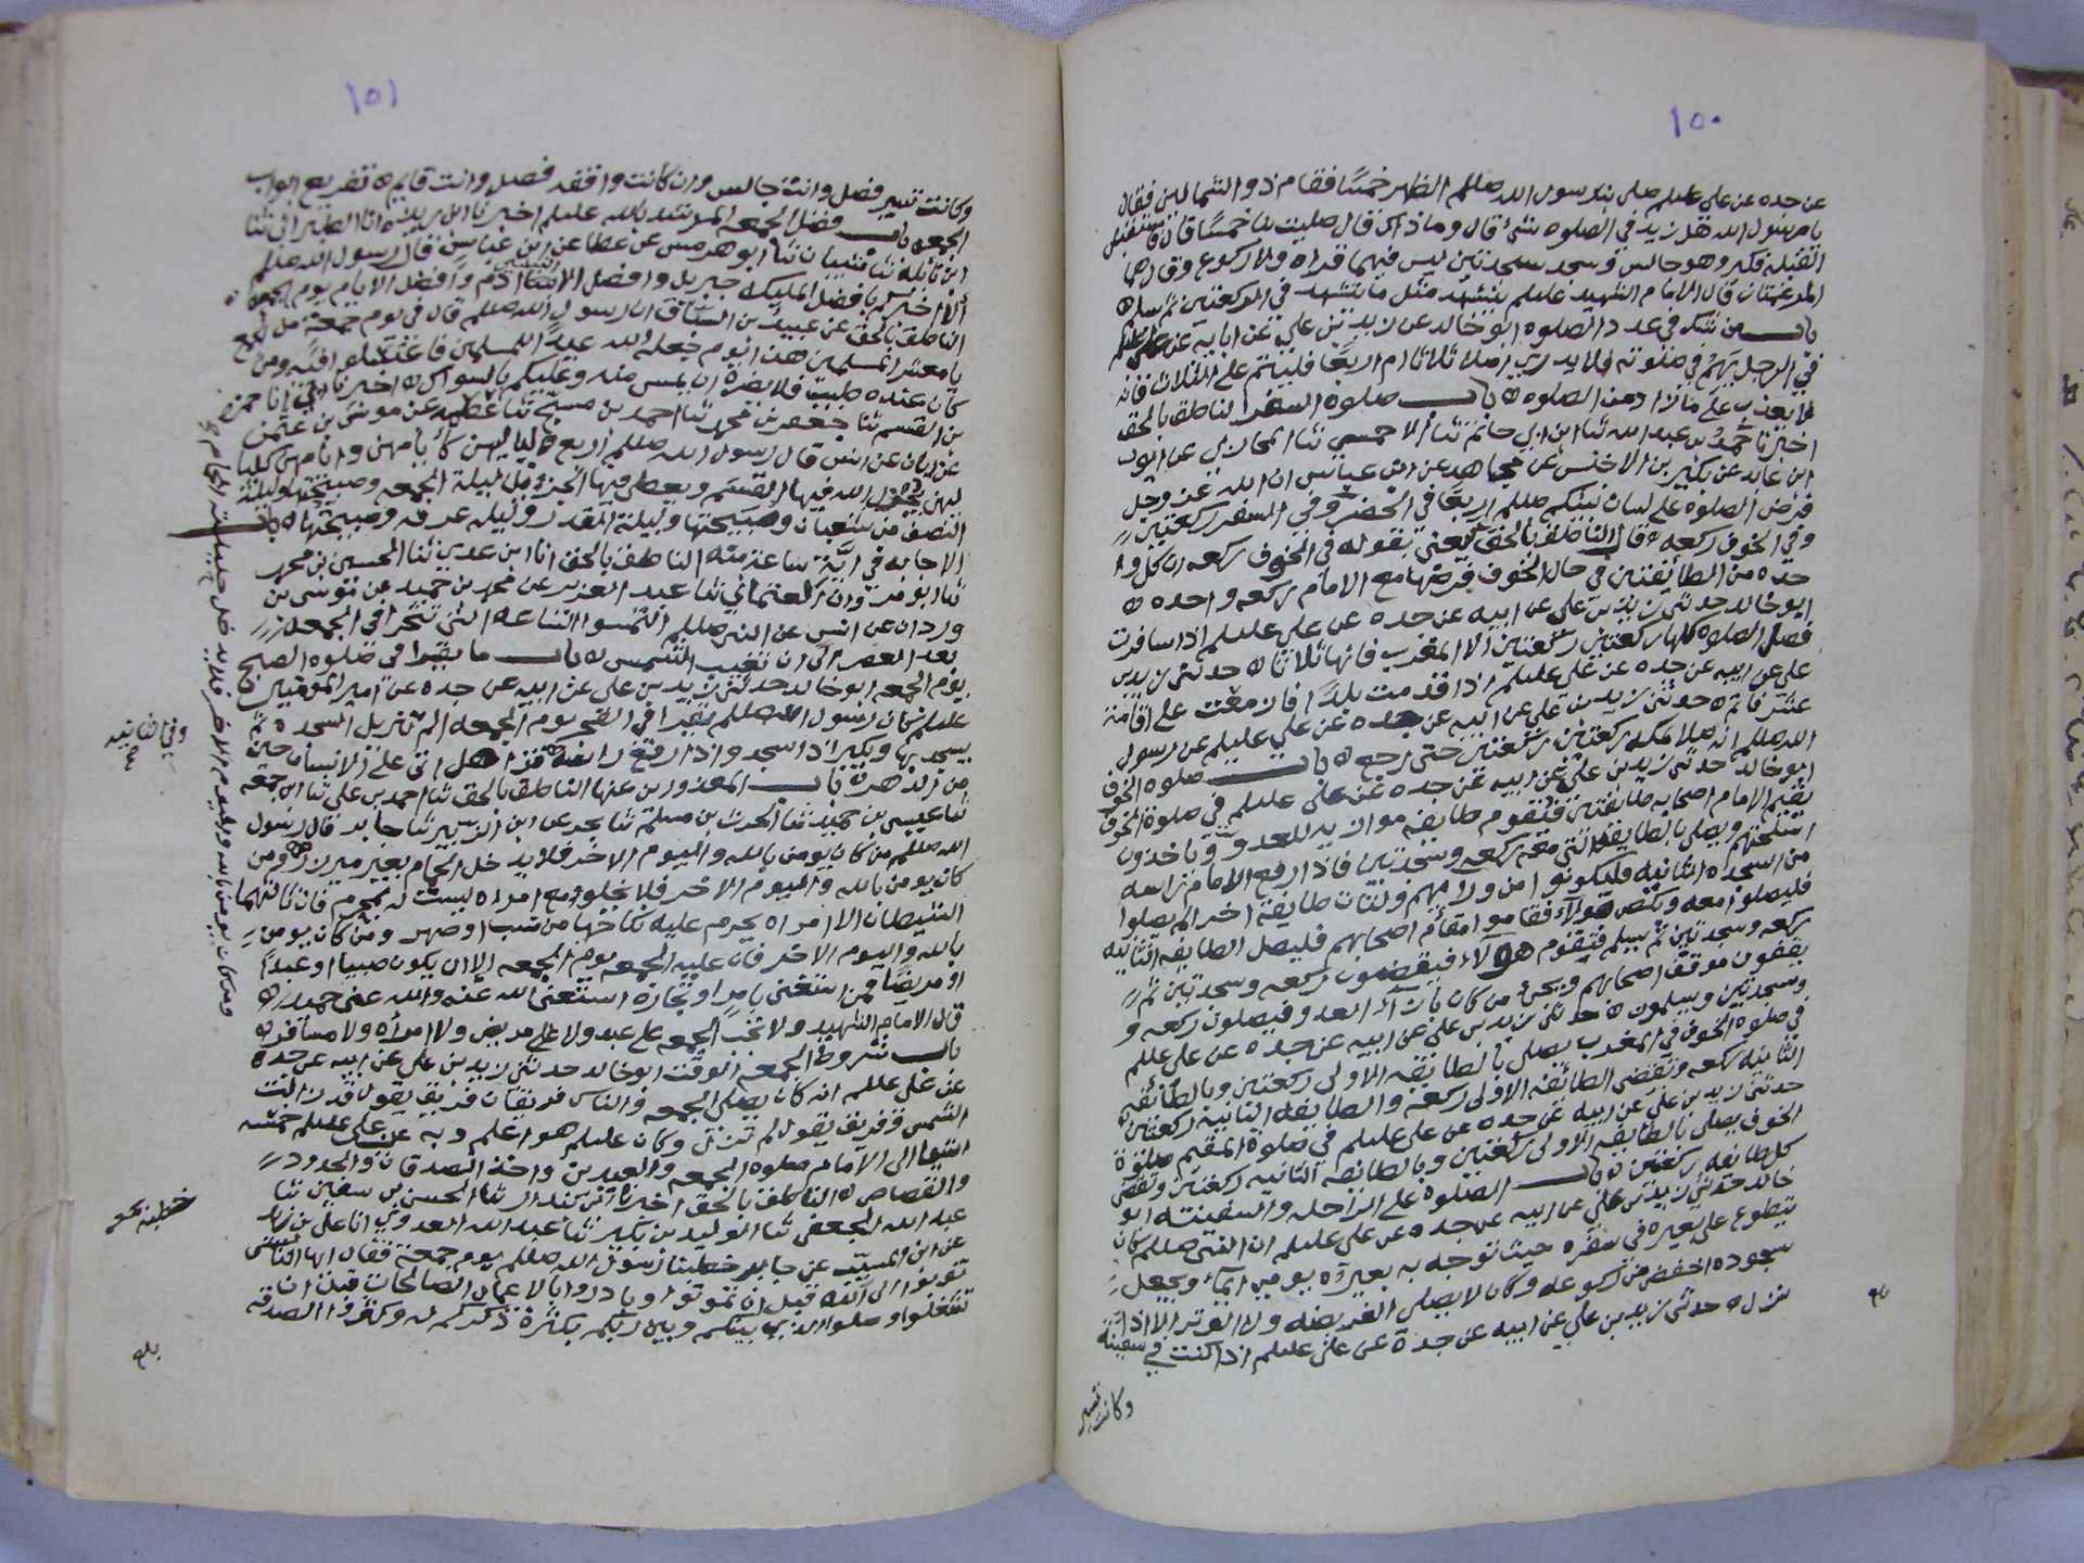 ١٥٠
عن جده عن علي عليلم صلى بنا رسول الله صللم الظهر خمسًا فقام ذو الشمالين فقال
يا رسول الله هل زيد في الصلوه شئ قال وما ذاك قال صليت بنا خمسًا قال فاستقبل
القبله فكبر وهو جالس وسجد سجدتين ليس فيهما قراه ولا ركوع وقال هما
المرغمتان قال الامام الشهيد عليلم يتشهد مثل ما يتشهد في الركعتين ثم يسلم ه
باب من شك في عدد الصلوه ابو خالد عن زيد بن علي عن ابايه عن علي عليلم
في الرجل يهم في صلوته فلا يدري اصلا ثلاثا ام اربعًا فليتم على الثلاث فانه
لا يعذب على ما زاد من الصلوه ه باب صلوة السفر الناطق بالحق
اخبرنا محمد بن عبد الله ثنا ابن ابي حاتم ثنا الاحمسي ثنا المحاربي عن ايوب
ابن عايد عن بكير بن الاخنس عن مجاهد عن ابن عباس ان الله عز وجل
فرض الصلوه على لسان نبيكم صللم اربعًا في الحضر وفي السفر ركعتين
وفي الخوف ركعه قال الناطق بالحق يعني بقوله في الخوف ركعه ان كل وا
حده من الطائفتين في حال الخوف فرضها مع الامام ركعه واحده ه
ابو خالد حدثني زيد بن علي عن ابيه عن جده عن علي عليلم اذا سافرت
فصل الصلاه كلها ركعتين ركعتين الا المغرب فانها ثلاثا ه حدثني زيد بن
علي عن ابيه عن جده عن علي عليلم اذا قدمت بلدًا فازمعت على اقامة
عشر فاتم ه حدثني زيد بن علي عن ابيه عن جده عن علي عليلم عن رسول
الله صللم انه صلا بمكه ركعتين ركعتين حتى رجع ه باب صلوه الخوف
ابو خالد حدثني زيد بن علي عن ابيه عن جده عن علي عليلم في صلوة الخوف
يقسم الامام اصحابه طايفتين فتقوم طايفه موازيه للعدو وياخذون
اسلحتهم ويصلي بالطايفه التي معه ركعه وسجدتين فاذا رفع الامام راسه
من السجده الثانيه فليكونوا من ورايهم ولتات طايفة اخرى لم يصلوا
فليصلوا معه وينكص هؤلاء فقاموا مقام اصحابهم فليصل الطايفه الثانيه
ركعه وسجدتين ثم يسلم فتقوم هؤلاء فيقضون ركعه وسجدتين ثم
يقفون موقف اصحابهم ويجئ من كان بازآء العدو فيصلون ركعه و
وسجدتين ويسلمون ه حدثني زيد بن علي عن ابيه عن جده عن علي عللم
في صلوة الخوف في المغرب يصلي بالطايفه الاولى ركعتين وبالطائفه
الثانيه ركعه وتقضي الطائفه الاولى ركعه والطايفه الثانيه ركعتين
حدثني زيد بن علي عن ابيه عن جده عن علي عليلم في صلوة المقيم صلوة
الخوف يصلي بالطايفه الاولى ركعتين وبالطائفه الثانيه ركعتين وتقضي
كل طائفه ركعتين ه باب الصلوة على الراحله والسفينه ابو
خالد حدثني زيد بن علي عن ابيه عن جده عن علي عليلم ان النبي صللم كان
يتطوع على بعيره في سفره حيث توجه به بعيره يومي ايماء ويجعل
سجوده اخفض من ركوعه وكان لا يصلي الفريضه ولا الوتر الا اذا
نزل ه حدثني زيد بن علي عن ابيه عن جده عن علي عليلم اذا كنت في سفينة
وكانت تسير
١٥١
وكانت تسير فصل وانت جالس وان كانت واقفه فصل وانت قايم ه تفريع ابواب
الجمعه باب فضل الجمعه المرشد بالله عليلم اخبرنا ابن ريذه انا الطبراني ثنا
ابن نائله ثنا شيبان ثنا ابو هرمس عن عطا عن ابن عباس قال رسول الله صللم
الا اخبركم بافضل المليكه جبريل وافضل النبيين آدم وافضل الايام يوم الجمعه ه
الناطق بالحق عن عبيد بن السباق ان رسول الله صللم قال في يوم جمعة من الجمع
يا معشر المسلمين هذا اليوم جعله الله عيدًا للمسلمين فاغتسلو افيه ومن
كان عنده طيب فلا يضره ان يمس منه وعليكم بالسواك ه اخبرنا ابي انا حمزه
بن القسم ثنا جعفر بن محمد ثنا احمد بن مسبح ثنا عطيه عن موسى بن عثمن
عن ابان عن انس قال رسول الله صللم اربع لياليهن كأيامهن وايامهن كليا
ليهن الله فيها القسم ويعطي فيها الجزيل ليلة الجمعه وصبيحتها وليلة
النصف من شعبان وصبيحتها وليلة القدر وليله عرفه وصبيحتها ه باب
الاجابه في اية ساعة منه الناطق بالحق انا ابن عدي ثنا الحسين بن محمد
ثنا ابو مروان العثماني ثنا عبد العزيز عن محمد بن حميد عن موسى بن
وردان عن انس عن النبي صللم التمسوا الساعه التي تتحرا في الجمعه
بعد العصر الى ان تغيب الشمس ه باب ما يقرا في صلوه الصبح
يوم الجمعه ابو خالد حدثني زيد بن علي عن ابيه عن جده عن امير المومنين
عليلم كان رسول الله صللم يقرا في الفجر يوم الجمعه الم تنزيل السجده ثم
يسجد بها ويكبر اذا سجد واذا رفع راسه قرا هل اتى على الانسان حين
من الدهر ه باب المعذورين عنها الناطق بالحق ثنا احمد بن علي ثنا ابن جمعه
ثنا عيسى بن حميد ثنا الحرث بن مسلم ثنا بحر عن ابي الزبير ثنا جابر قال رسول
الله صللم من كان يومن بالله واليوم الاخر فلا يدخل الحمام بغير ميزر ومن
كان يومن بالله واليوم الاخر فلا يخلو مع امراه ليست له بمحرم فان ثالثهما
الشيطان الا امراه يحرم عليه نكاحها من نسب او صهر ومن كان يومن
بالله واليوم الاخر فان عليه الجمعه يوم الجمعه الا ان يكون صبيا او عبدًا
او مريضًا فمن استغنى بامر او تجارة استغنى الله عنه والله غني حميد
قال الامام الشهيد ولا تجب الجمعه على عبد ولا على مريض ولا امرأه ولا مسافر ه
باب شروط الجمعه الوقت ابو خالد حدثني زيد بن علي عن ابيه عن جده
عن علي عللم انه كان يصلي الجمعه والناس فريقان فريق يقول قد زالت
الشمس وفريق يقول لم تزل وكان عليلم هو اعلم وبه عن علي عليلم خمسه
اشيا الى الامام صلوه الجمعه والعيدين واخذ الصدقات والحدود
والقصاص ه الناطق بالحق اخبرنا ابن بندار ثنا الحسن بن سفين ثنا
عبد الله الجعفي ثنا الوليد بن بكير ثنا عبد الله العدوي انا علي بن زيد
عن ابن المسيب عن جابر خطبنا رسول الله صللم يوم جمعة فقال ايها الناس
توبوا الى الله قبل ان تموتوا وبادروا بالاعمال الصالحات قبل ان
تشغلوا وصلوا الذي بينكم وبين ربكم بكثرة ذكركم له وكثرة الصدقه
وفي الثانيه
ومن كان يومن بالله واليوم الاخر فلا يدخل حليلته الحمام
بلغ